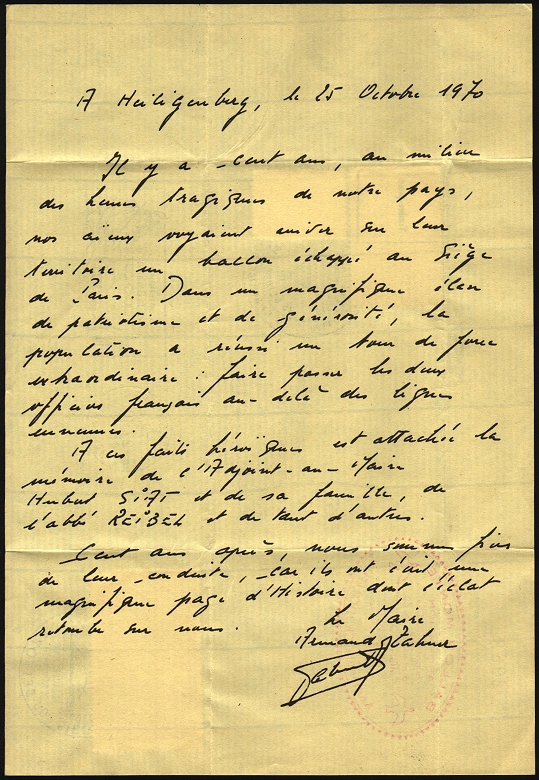 A Heiligenberg, le 25 Octobre 1970
Il y a cent ans, au milieu
des heures tragiques de notre pays,
nos aïeux voyaient arriver sur leur
territoire un ballon échappé au Siège
de Paris. Dans un magnifique élan
de patriotisme et de générosité, la
population a réussi un tour de force
extraordinaire : faire passer les deux
officiers français au-delà des lignes
ennemies.
A ces faits héroïques est attachée la
mémoire de l'Adjoint-au-Maire
Hubert et de sa famille, de
l'abbé REIBEL et de tant d'autres.
Cent ans après, nous sommes fiers
de leur conduite, car ils ont écrit une
magnifique page d'Histoire dont l'éclat
retombe sur nous.
Le Maire
Armand